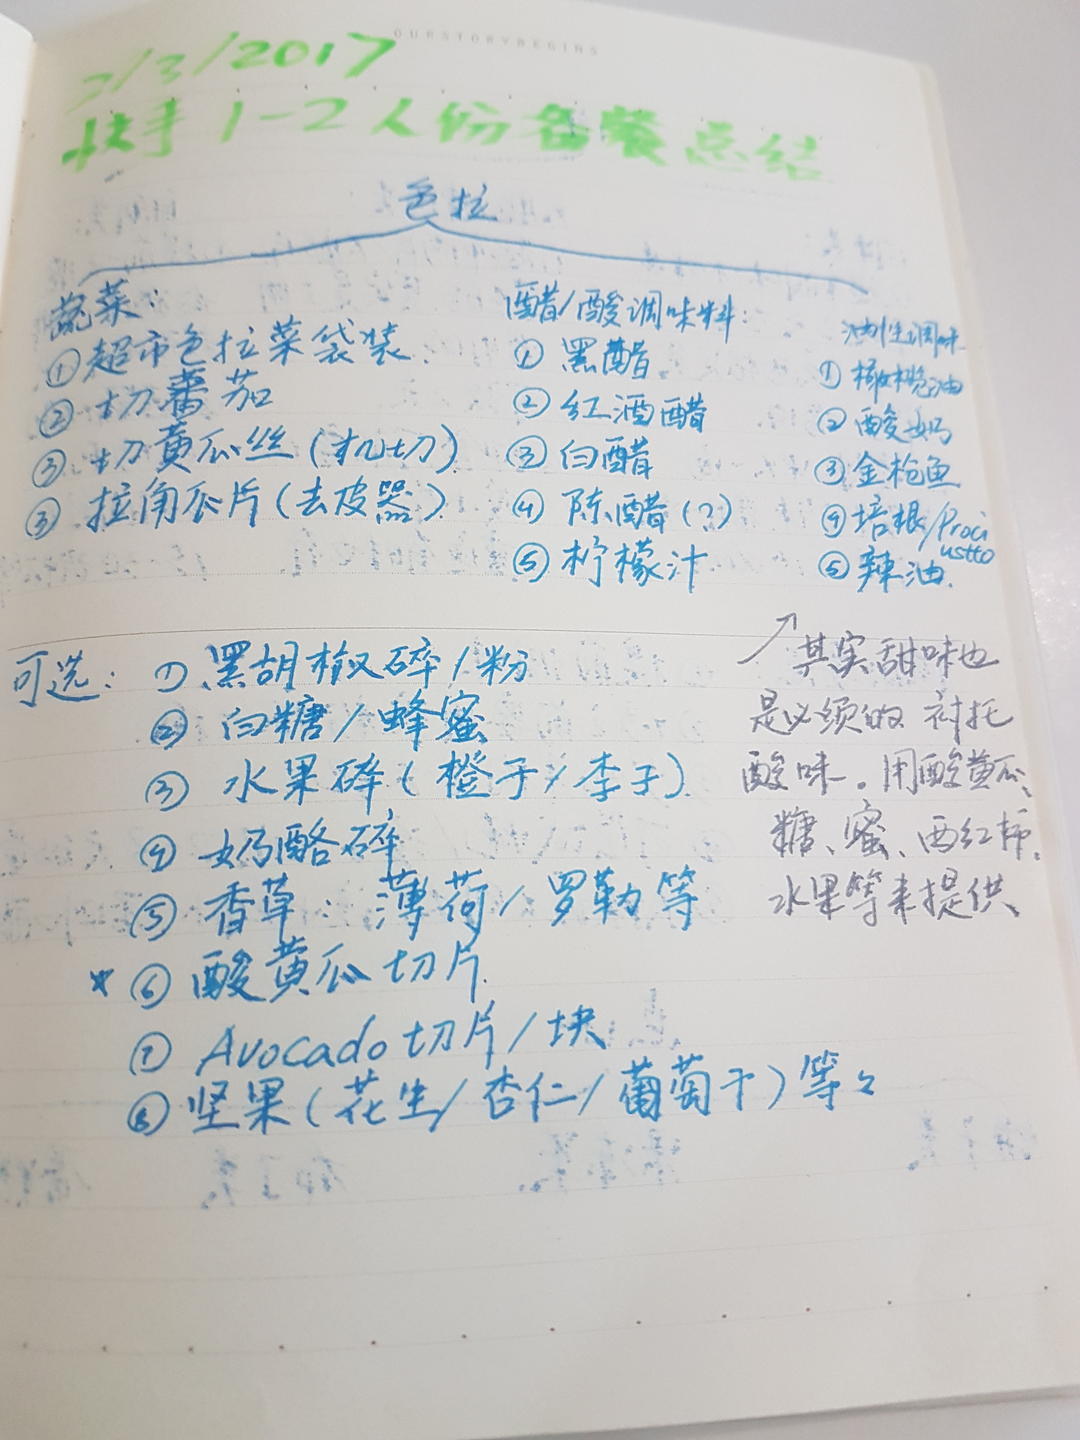 OURSTORYBEGINS
7/3/2017
快手1-2人份备餐总结
色拉
蔬菜：
①超市色拉菜袋装
②切蕃茄
③切黄瓜丝(机切)
③拉角瓜片(去皮器)
醋/酸调味料：
①黑醋
②红酒醋
③白醋
④陈醋(?)
⑤柠檬汁
油性调味
①橄榄油
②酸奶
③金枪鱼
④培根/Proci
ustto
⑤辣油.
可选：①黑胡椒碎/粉
②白糖/蜂蜜
③水果碎(橙子/李子)
④奶酪碎
⑤香草：薄荷/罗勒等
*⑥酸黄瓜切片.
⑦Avocado切片/块
⑧坚果(花生/杏仁/葡萄干)等々
↗其实甜味也
是必须的 衬托
酸味。用酸黄瓜、
糖、蜜、西红柿、
水果等来提供、